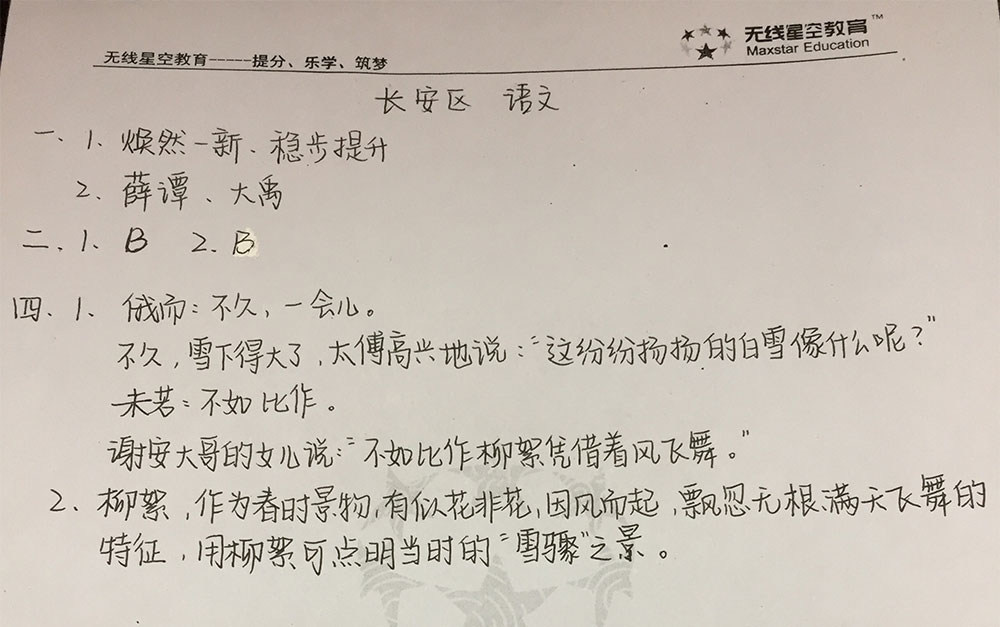 无线星空教育-----提分、乐学、筑梦
无线星空教育™
Maxstar Education
长安区 语文
一、1、焕然一新、稳步提升
2、薛谭、大禹
二、1、B 2、B
四、1、俄而：不久，一会儿。
不久，雪下得大了，太傅高兴地说：“这纷纷扬扬的白雪像什么呢？”
未若：不如比作。
谢安大哥的女儿说：“不如比作柳絮凭借着风飞舞。”
2、柳絮，作为春时景物，有似花非花，因风而起，飘忽无根、满天飞舞的
特征，用柳絮可点明当时的“雪骤”之景。